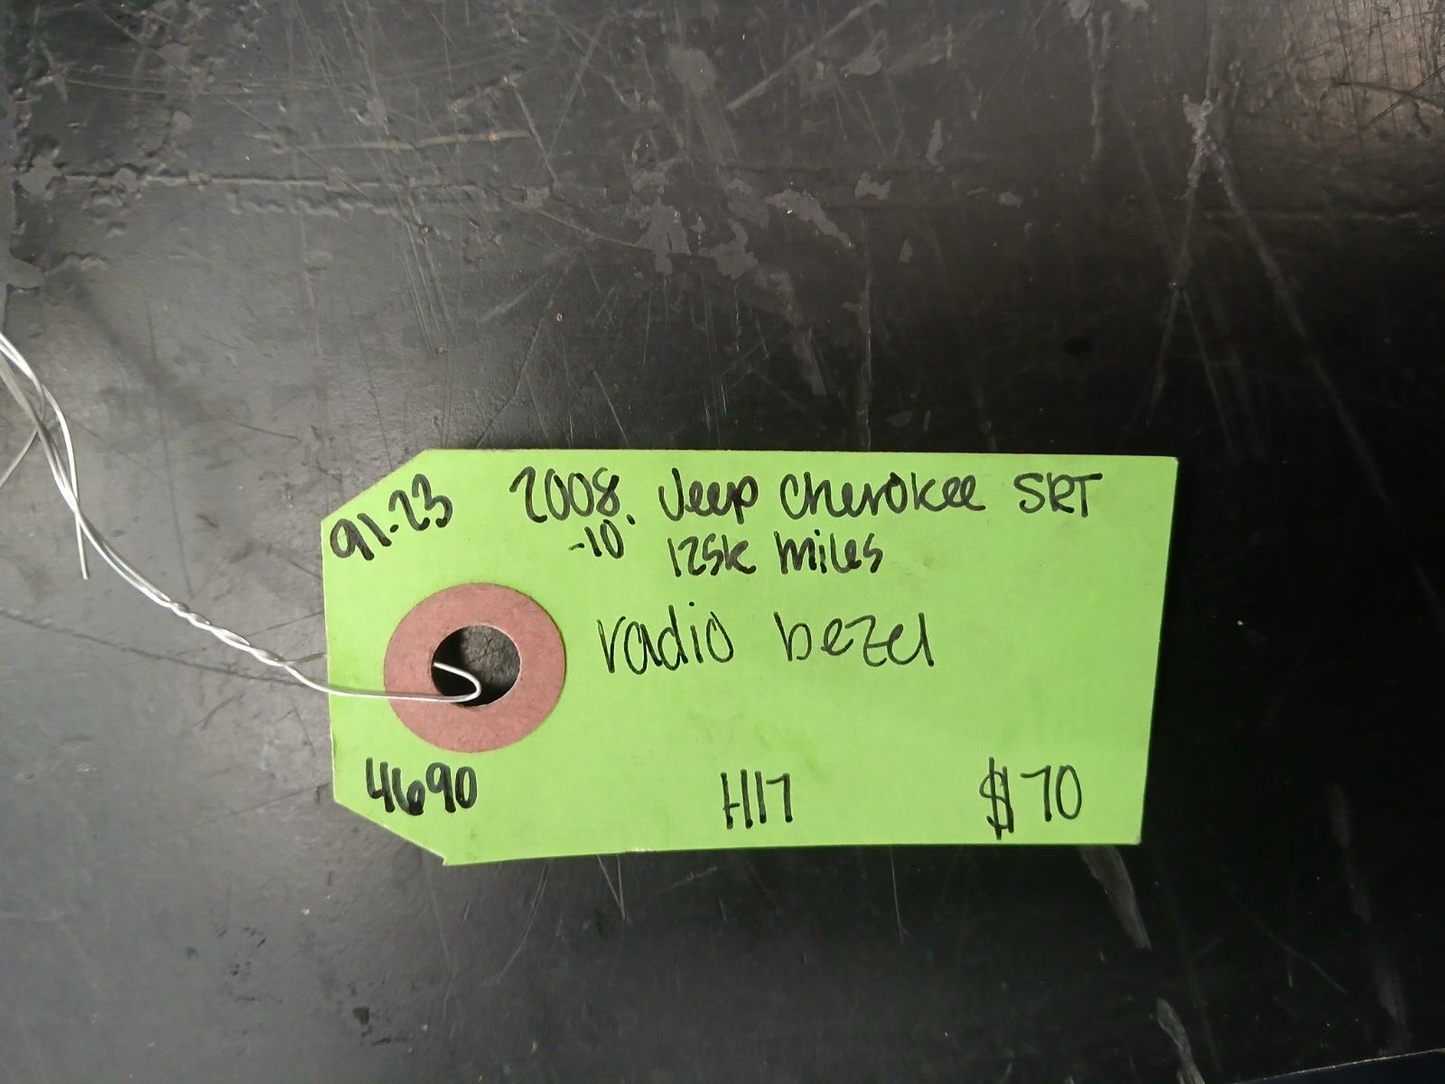 91-23
2008. Jeep Cherokee SRT
-10. 125k miles
radio bezel
4690
H17
$70